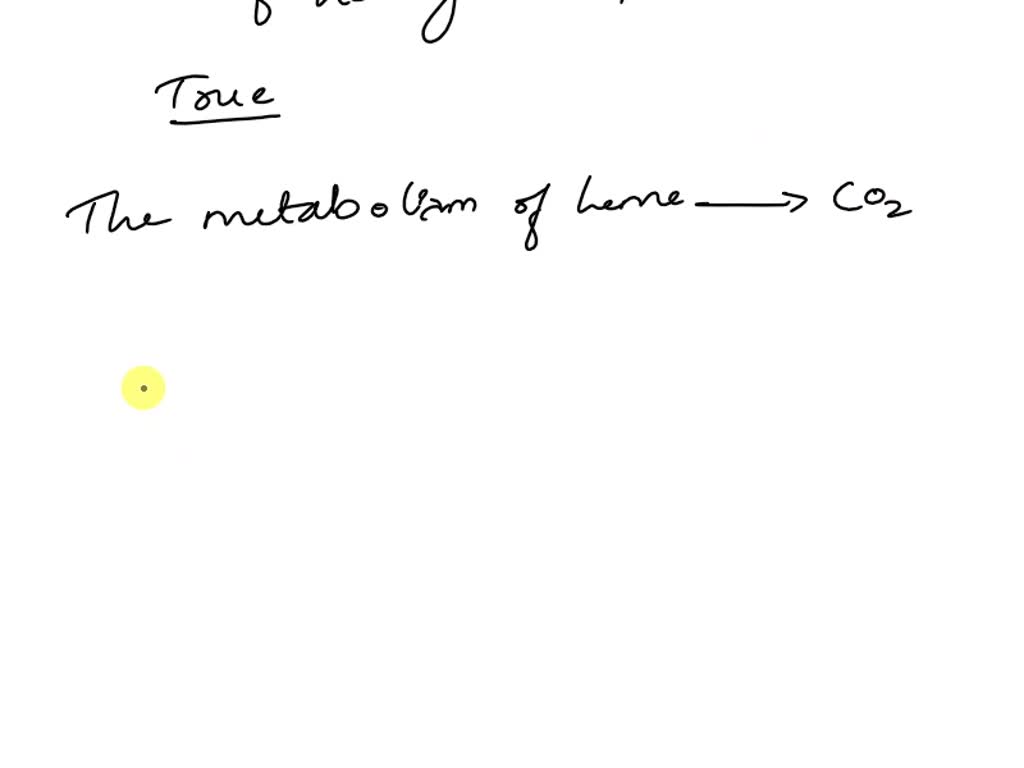 of
True
The metabolism of heme → CO2